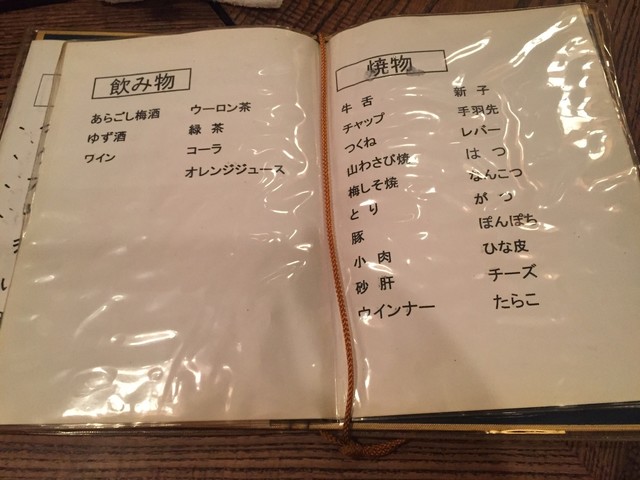 飲み物
あらごし梅酒
ゆず酒
ワイン
ウーロン茶
緑 茶
コーラ
オレンジジュース
焼物
牛 舌
チャップ
つくね
山わさび焼
梅しそ焼
と り
豚
小 肉
砂 肝
ウインナー
新 子
手羽先
レバー
は つ
なんこつ
が つ
ぽんぽち
ひな皮
チーズ
たらこ